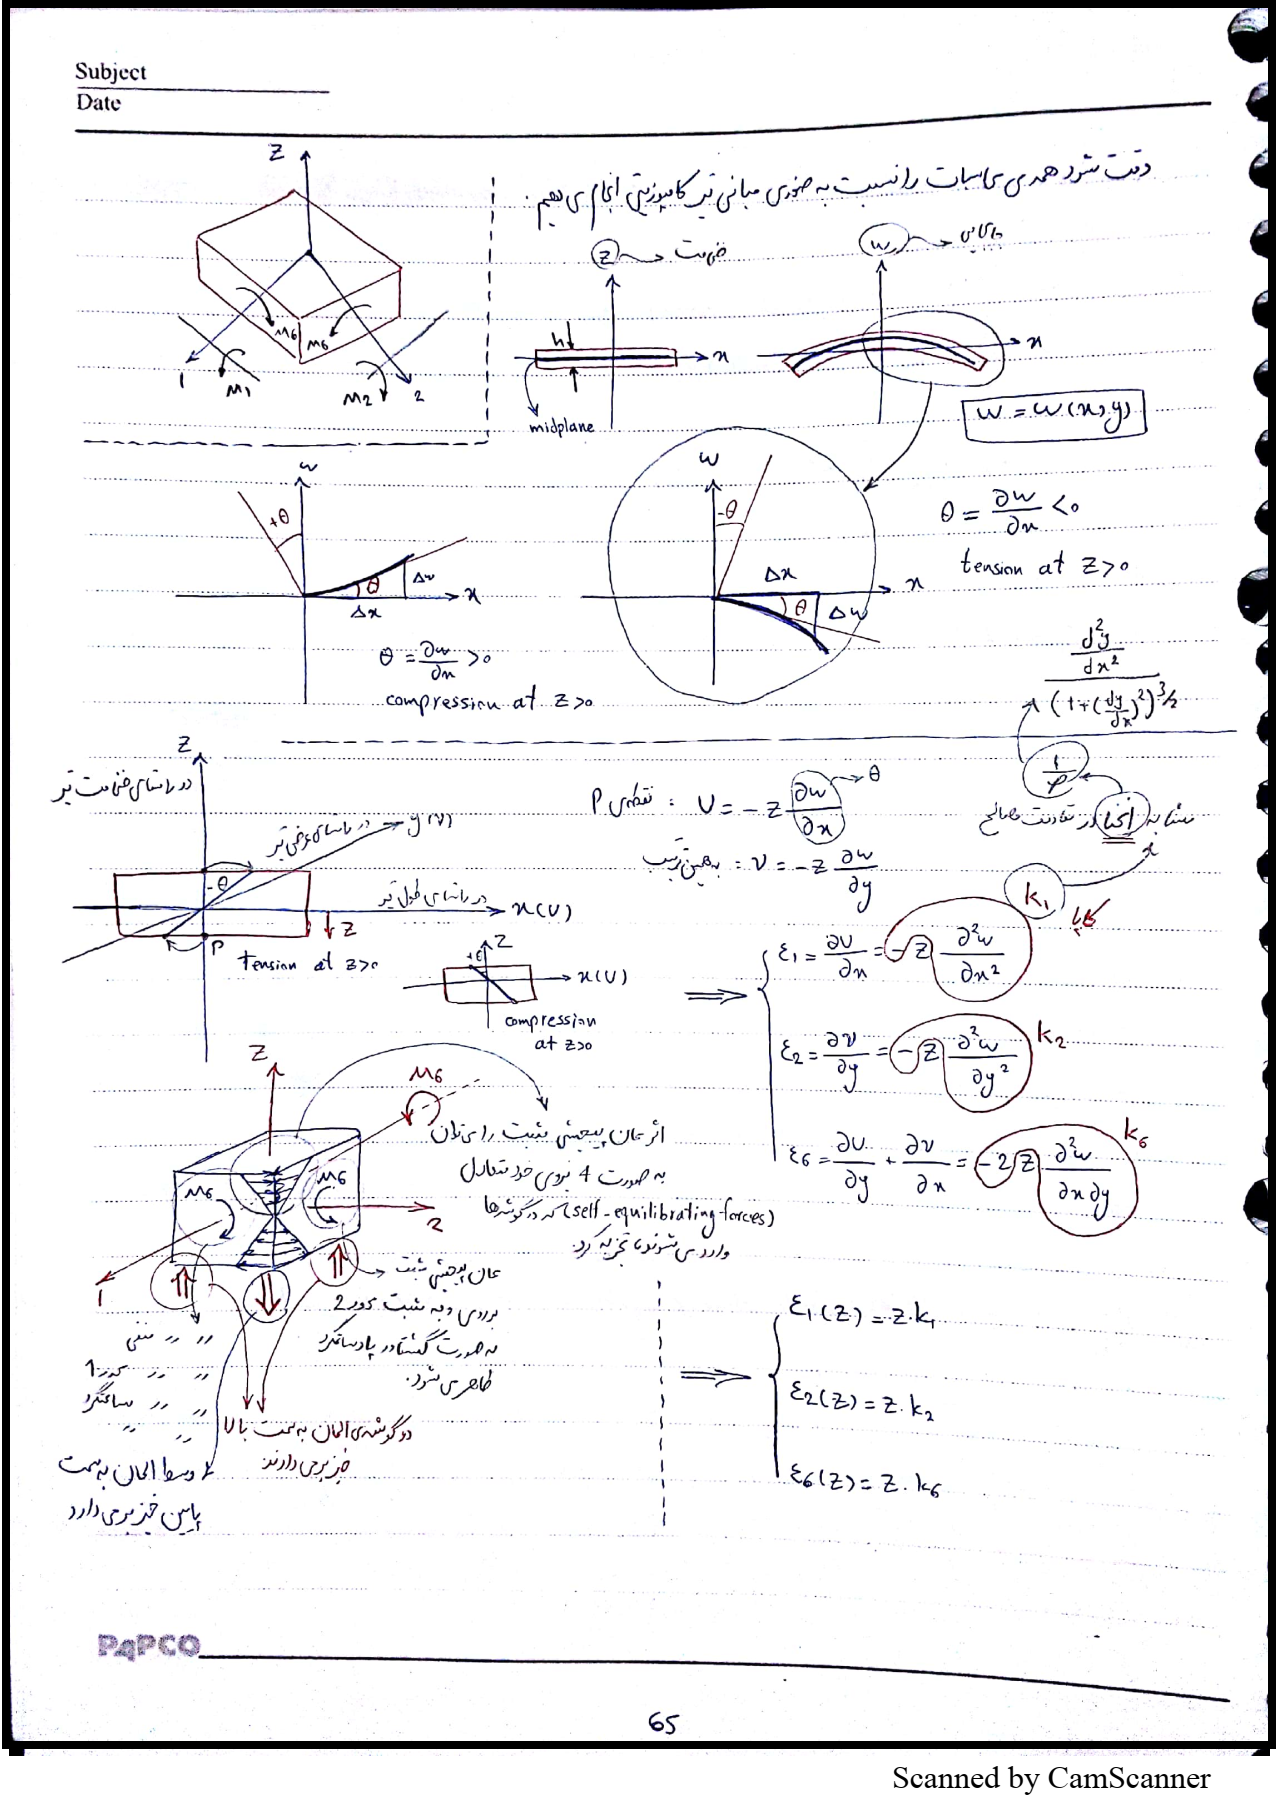 Subject
Date
دقت شود همه‌ی محاسبات را نسبت به صفحه‌ی میانی تیر کامپوزیتی انجام می‌دهیم.
Z
M6
M6
1
M1
M2
2
Z → ضخامت
h
x
midplane
w
x
w = w(x,y)
w
+θ
θ
Δw
x
Δx
θ = ∂w/∂x >0
compression at z>0
w
-θ
Δx
x
θ
Δw
θ = ∂w/∂x <0
tension at z>0
d²y/dx² / (1+(dy/dx)²)^3/2
1/ρ
مشابه انحنا در مقاومت مصالح
Z
در راستای ضخامت تیر
در راستای عرض تیر
y(V)
-θ
در راستای طول تیر
x(U)
P
Z
Tension at z>0
Z
+θ
x(U)
compression
at z>0
نقطه‌ی P : U = -z ∂w/∂x → θ
به همین ترتیب : v = -z ∂w/∂y
k1
کاپا
ε1 = ∂U/∂x = -z ∂²w/∂x²
ε2 = ∂v/∂y = -z ∂²w/∂y² k2
ε6 = ∂U/∂y + ∂v/∂x = -2z ∂²w/∂x∂y k6
Z
M6
M6
M6
2
1
اثر ممان پیچشی مثبت را می‌توان
به صورت 4 نیروی خود متعادل
(self-equilibrating forces) که در گوشه‌ها
وارد می‌شوند تجزیه کرد.
ممان پیچشی مثبت
بر روی وجه مثبت محور 2
به صورت گشتاور پادساعتگرد
ظاهر می‌شود.
〃 〃 منفی
〃 〃 محور 1
〃 〃 ساعتگرد
〃 〃
دو گوشه‌ی المان به سمت بالا
خیز برمی‌دارند
وسط المان به سمت
پایین خیز برمی‌دارد
ε1(z) = z.k1
ε2(z) = z.k2
ε6(z) = z.k6
PAPCO
65
Scanned by CamScanner